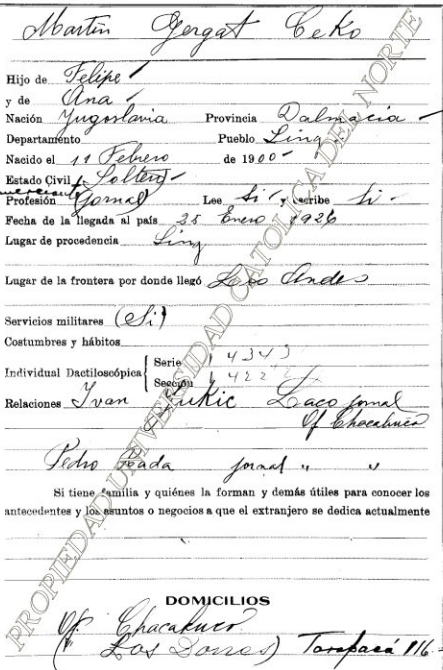 Martin Gergat Ceko
Hijo de Felipe
y de Ana
Nación Yugoslavia Provincia Dalmacia
Departamento Pueblo Sinq
Nacido el 11 Febrero de 1900
Estado Civil Soltero
comerciante
Profesión Jornal Lee Si escribe Si
Fecha de la llegada al país 25 Enero 1926
Lugar de procedencia Sinq
Lugar de la frontera por donde llegó Los Andes
Servicios militares (Si)
Costumbres y hábitos
Individual Dactiloscópica { Serie 4343
Sección 4222
Relaciones Ivan Jukic Laco jornal
Of Chacabuco
Pedro jornal " "
Si tiene familia y quiénes la forman y demás útiles para conocer los
antecedentes y los asuntos o negocios a que el extranjero se dedica actualmente
DOMICILIOS
Of. Chacabuco
(Los Dones) Tarapacá 816
PROPIEDAD UNIVERSIDAD CATOLICA DEL NORTE